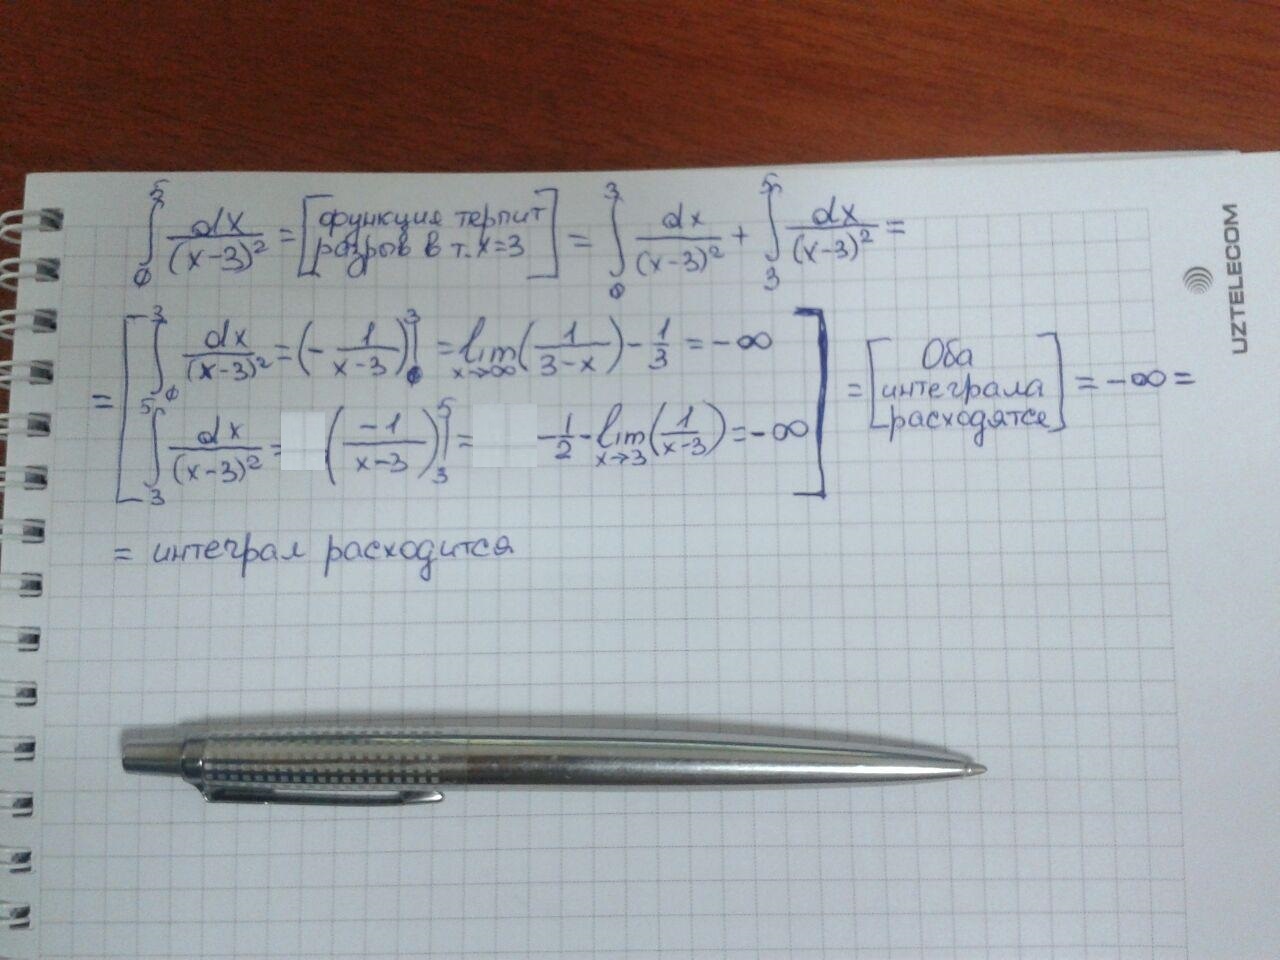 ∫₀⁵ dx/(x-3)² = [функция терпит разрыв в т. x=3] = ∫₀³ dx/(x-3)² + ∫₃⁵ dx/(x-3)² =
= [∫₀³ dx/(x-3)² = (- 1/(x-3))|₀³ = lim x→∞ (1/(3-x)) - 1/3 = -∞
∫₃⁵ dx/(x-3)² = (-1/(x-3))|₃⁵ = -1/2 - lim x→3 (1/(x-3)) = -∞] = [Оба интеграла расходятся] = -∞ =
= интеграл расходится
UZTELECOM